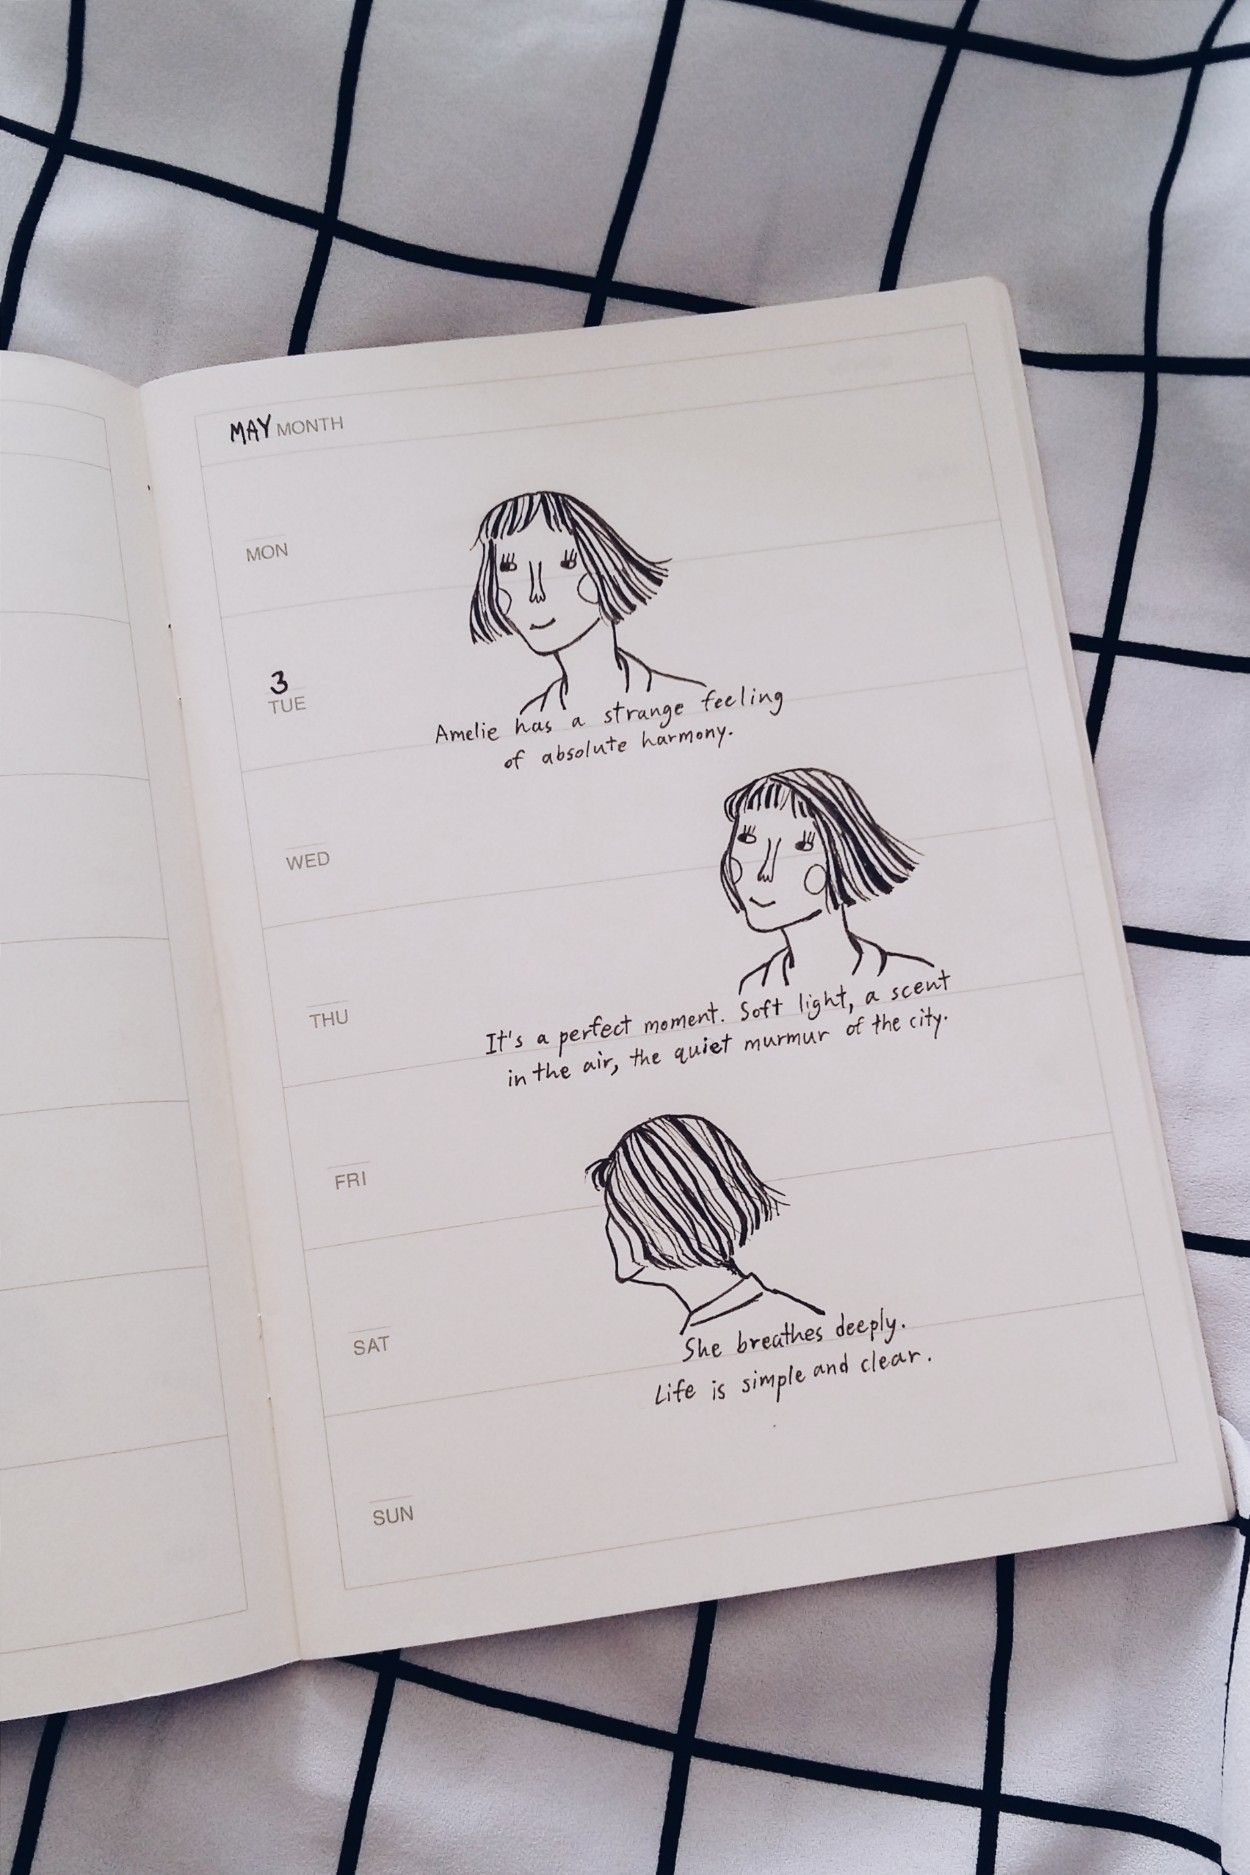 MAY MONTH
MON
3
TUE
Amelie has a strange feeling
of absolute harmony.
WED
THU
It's a perfect moment. Soft light, a scent
in the air, the quiet murmur of the city.
FRI
SAT
She breathes deeply.
Life is simple and clear.
SUN